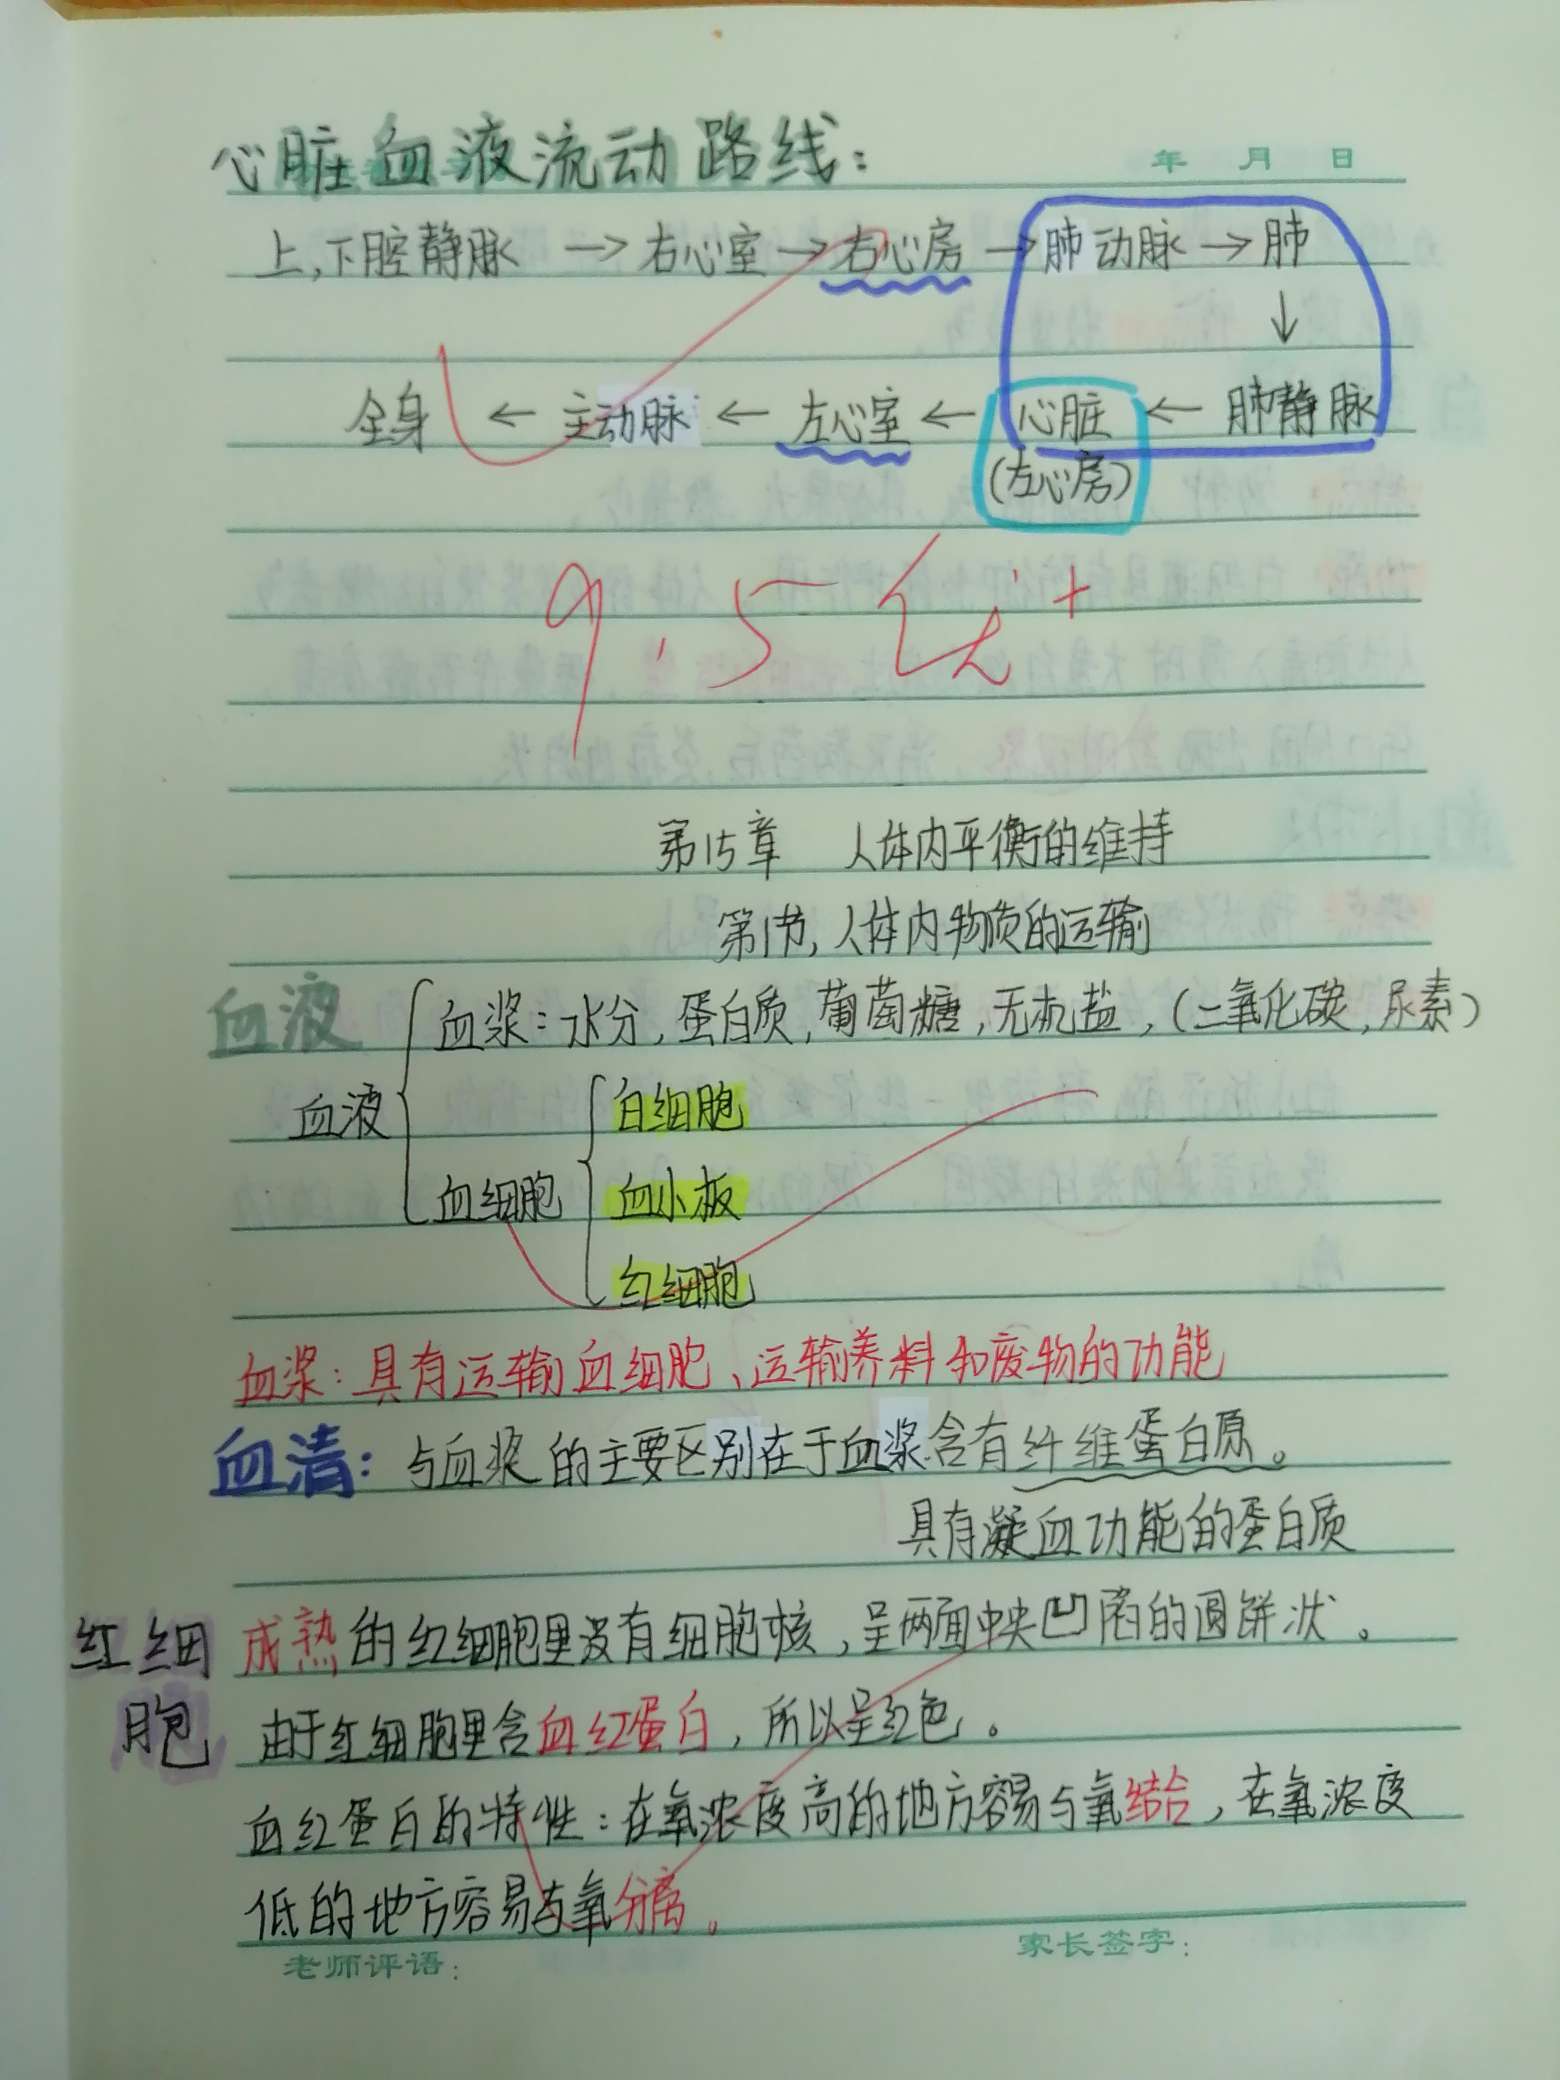 心脏血液流动路线：
年 月 日
上,下腔静脉 → 右心室 → 右心房 → 肺动脉 → 肺
↓
全身 ← 主动脉 ← 左心室 ← 心脏 ← 肺静脉
(左心房)
9.5
第15章 人体内平衡的维持
第1节, 人体内物质的运输
血液
血浆：水分, 蛋白质, 葡萄糖, 无机盐, (二氧化碳, 尿素)
白细胞
血液
血细胞 血小板
红细胞
血浆：具有运输血细胞、运输养料和废物的功能
血清：与血浆的主要区别在于血浆含有纤维蛋白原。
具有凝血功能的蛋白质
红细胞 成熟的红细胞里没有细胞核，呈两面中央凹陷的圆饼状。
由于红细胞里含血红蛋白，所以呈红色。
血红蛋白的特性：在氧浓度高的地方容易与氧结合，在氧浓度
低的地方容易与氧分离。
老师评语：
家长签字：